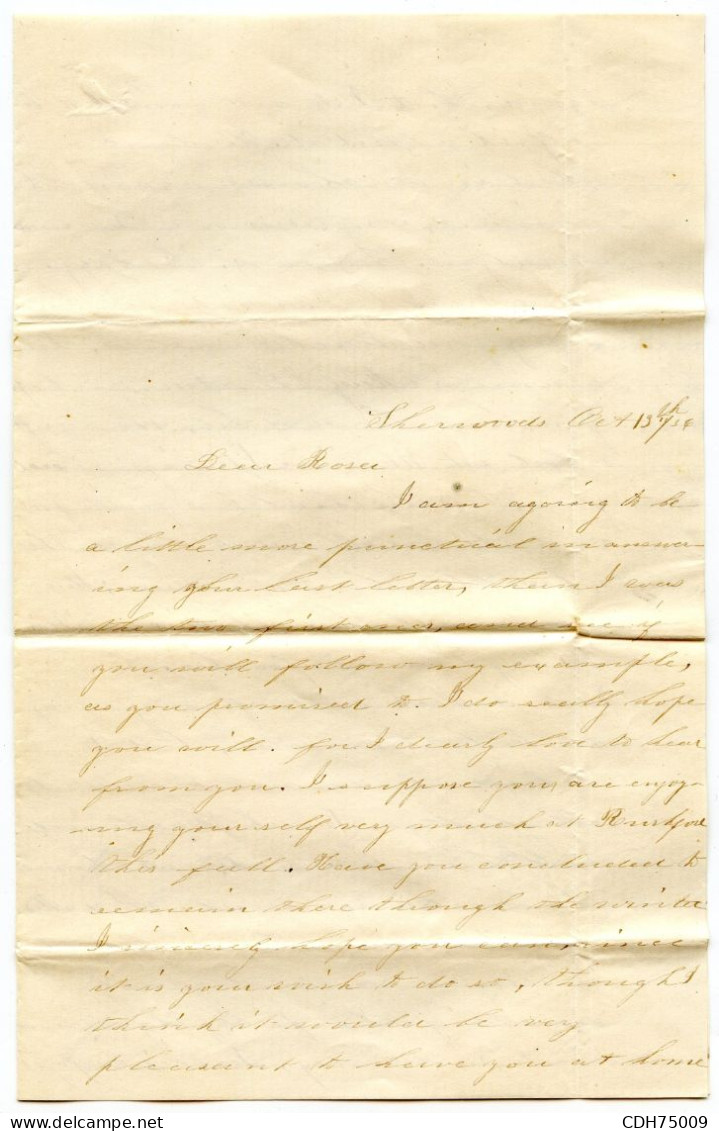 Sherwoods Oct 13th/54
Dear Rosa
I am agoing to be
a little more punctual in answer
ing your last letter, than I was
the two first ones, and see if
you will follow my example,
as you promised to. I do really hope
you will. for I dearly love to hear
from you. I suppose you are enjoy-
ing yourself very much at Rushford
this fall. Have you concluded to
remain there though the winter
I hope you can since
it is your wish to do so, though I
think it would be very
pleasant to have you at home
CDH75009